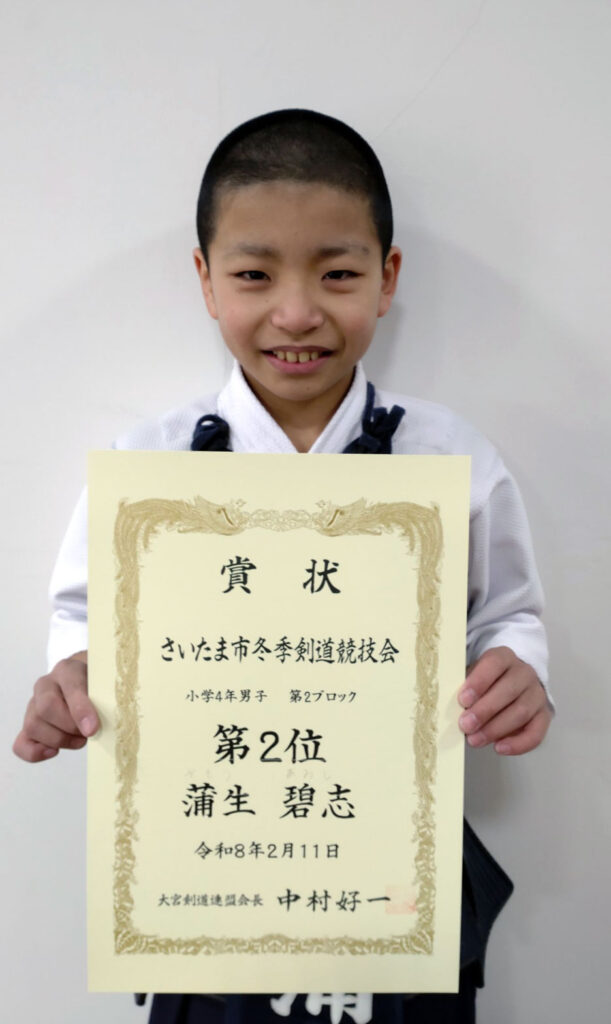 賞 状
さいたま市冬季剣道競技会
小学4年男子 第2ブロック
第2位
がもう あおし
蒲生 碧志
令和8年2月11日
大宮剣道連盟会長 中村好一
蒲